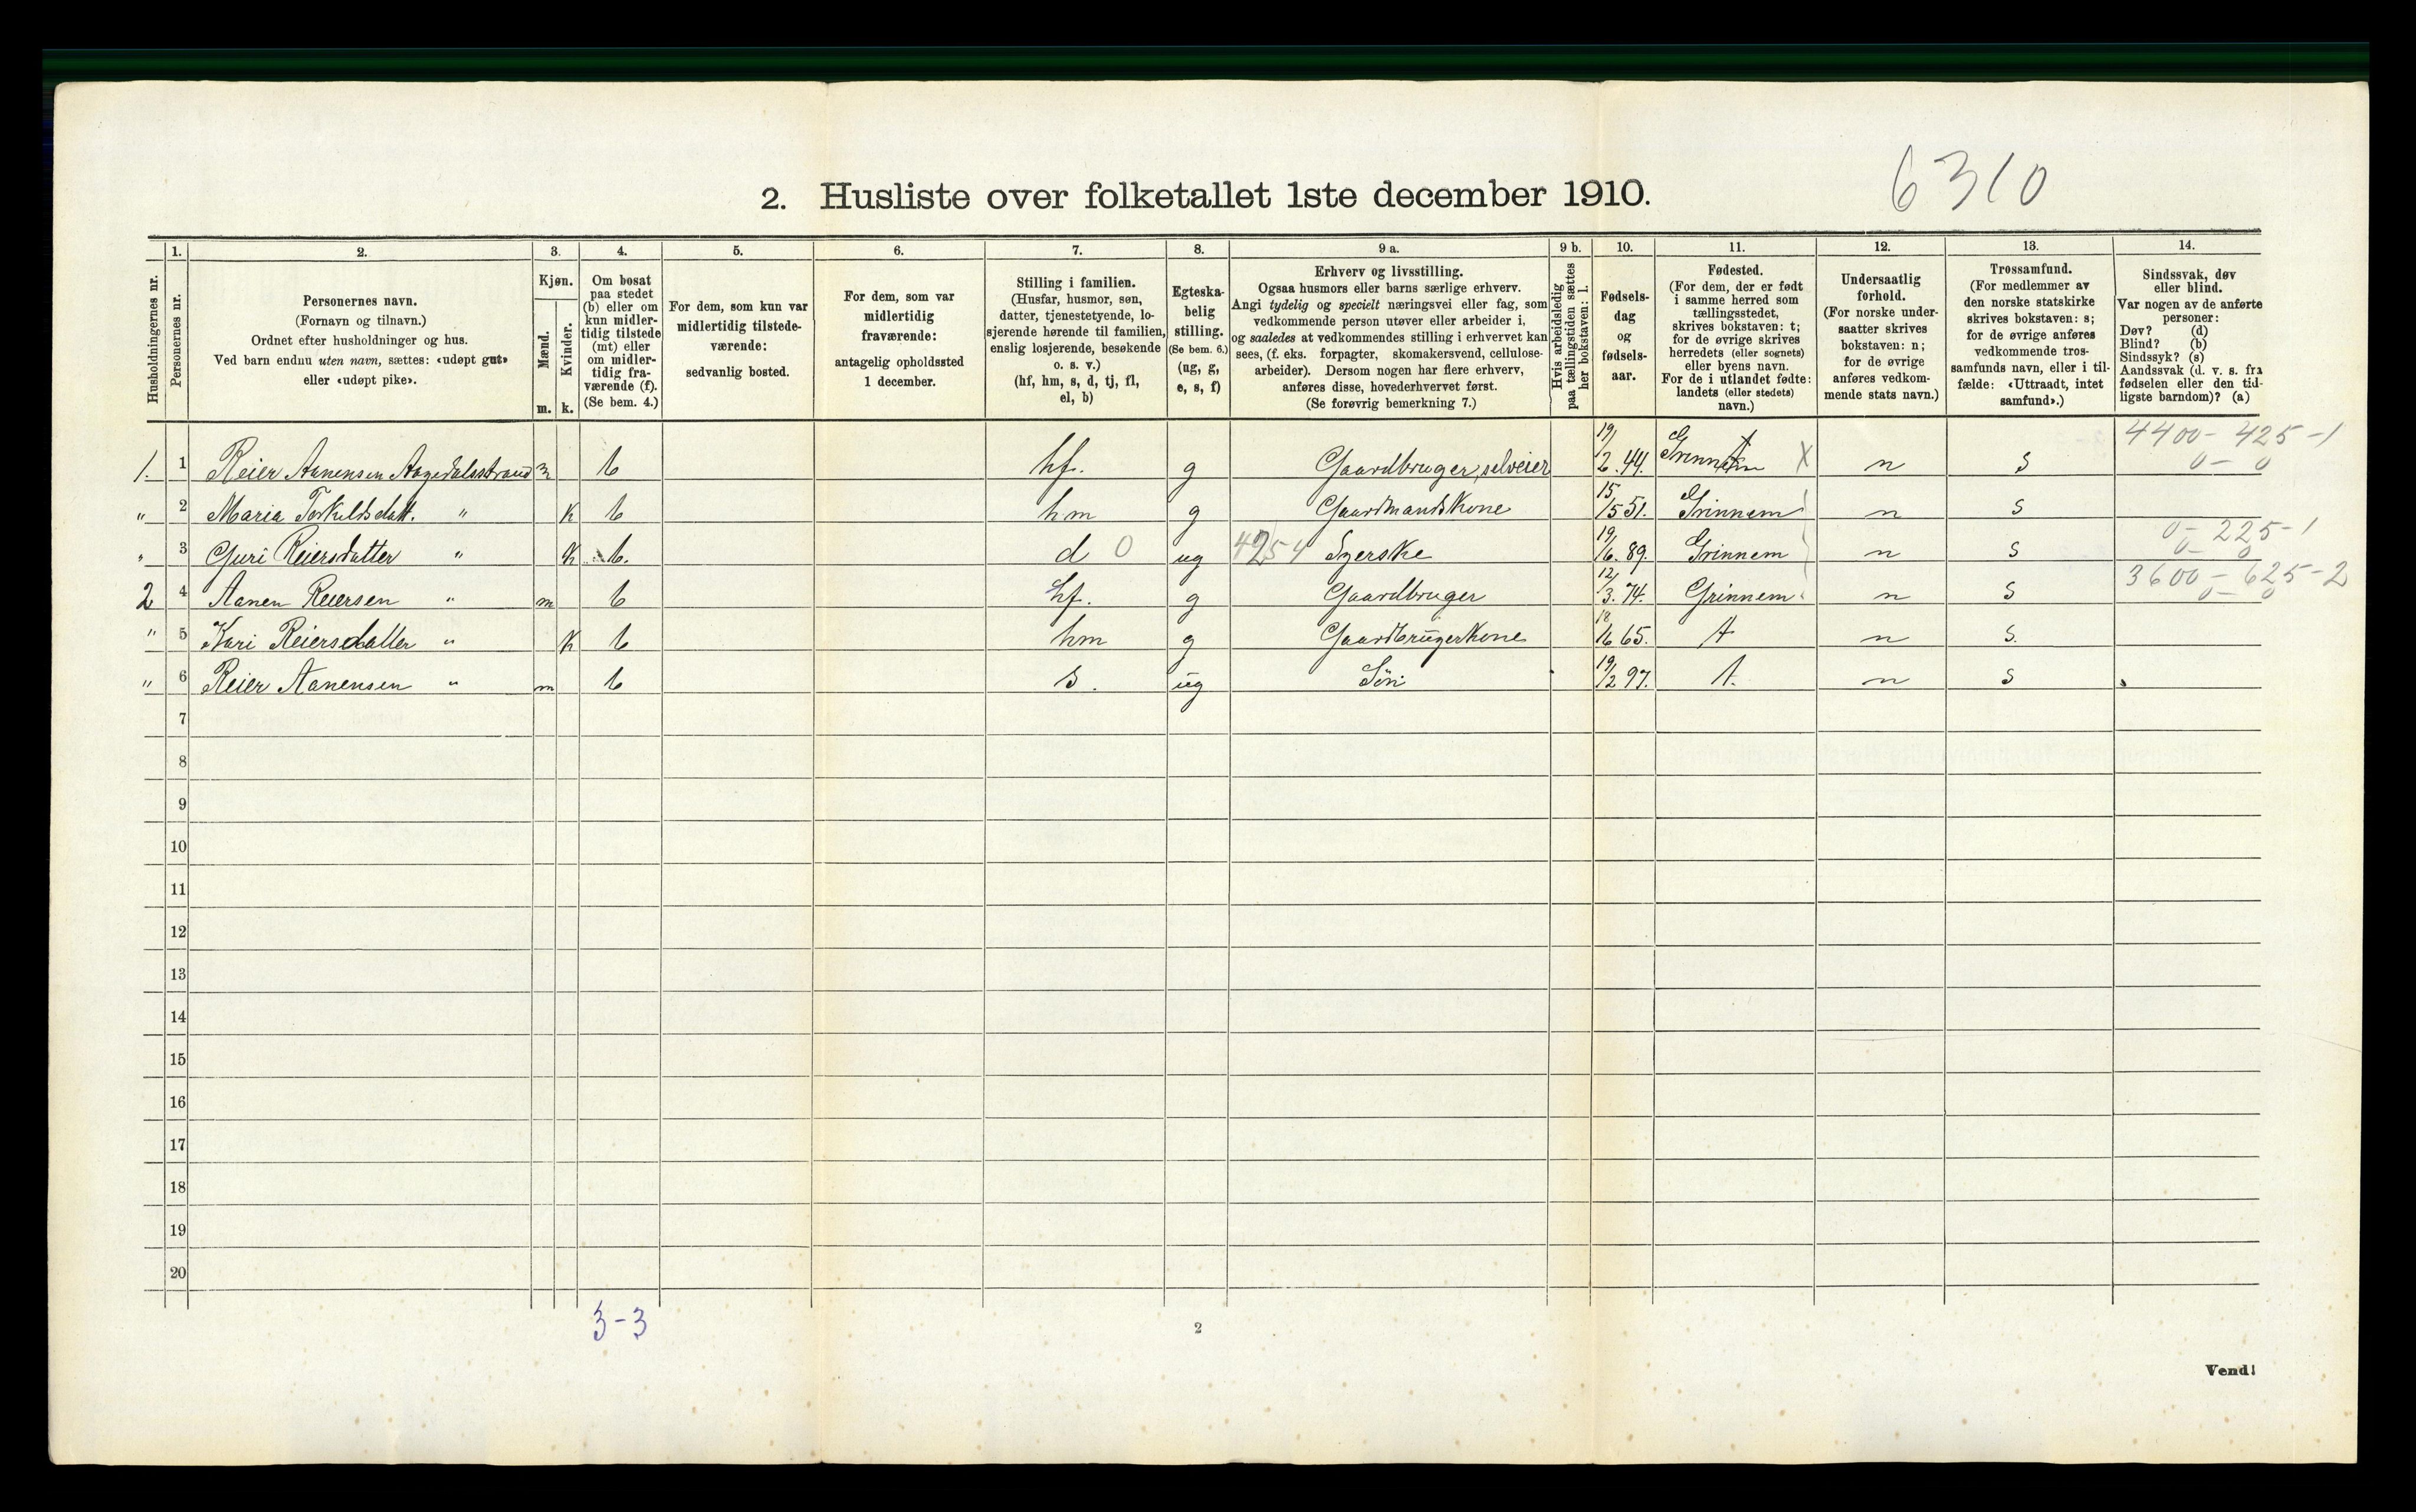 6310
2. Husliste over folketallet 1ste december 1910.
Husholdningernes nr.
1.
Personernes nr.
2.
Personernes navn.
(Fornavn og tilnavn.)
Ordnet efter husholdninger og hus.
Ved barn endnu uten navn, sættes: «udøpt gut»
eller «udøpt pike».
3.
Kjøn.
Mænd.
m.
Kvinder.
k.
4.
Om bosat
paa stedet
(b) eller om
kun midler-
tidig tilstede
(mt) eller
om midler-
tidig fra-
værende (f).
(Se bem. 4.)
5.
For dem, som kun var
midlertidig tilstede-
værende:
sedvanlig bosted.
6.
For dem, som var
midlertidig
fraværende:
antagelig opholdssted
1 december.
7.
Stilling i familien.
(Husfar, husmor, søn,
datter, tjenestetyende, lo-
sjerende hørende til familien,
enslig losjerende, besøkende
o. s. v.)
(hf, hm, s, d, tj, fl,
el, b)
8.
Egteska-
belig
stilling.
(Se bem. 6.)
(ug, g,
e, s, f)
9 a.
Erhverv og livsstilling.
Ogsaa husmors eller barns særlige erhverv.
Angi tydelig og specielt næringsvei eller fag, som
vedkommende person utøver eller arbeider i,
og saaledes at vedkommendes stilling i erhvervet kan
sees, (f. eks. forpagter, skomakersvend, cellulose-
arbeider). Dersom nogen har flere erhverv,
anføres disse, hovederhvervet først.
(Se forøvrig bemerkning 7.)
9 b.
Hvis arbeidsledig
paa tællingstiden sættes
her bokstaven: l.
10.
Fødsels-
dag
og
fødsels-
aar.
11.
Fødested.
(For dem, der er født
i samme herred som
tællingsstedet,
skrives bokstaven: t;
for de øvrige skrives
herredets (eller sognets)
eller byens navn.
For de i utlandet fødte:
landets (eller stedets)
navn.)
12.
Undersaatlig
forhold.
(For norske under-
saatter skrives
bokstaven: n;
for de øvrige
anføres vedkom-
mende stats navn.)
13.
Trossamfund.
(For medlemmer av
den norske statskirke
skrives bokstaven: s;
for de øvrige anføres
vedkommende tros-
samfunds navn, eller i til-
fælde: «Uttraadt, intet
samfund».)
14.
Sindssvak, døv
eller blind.
Var nogen av de anførte
personer:
Døv? (d)
Blind? (b)
Sindssyk? (s)
Aandssvak (d. v. s. fra
fødselen eller den tid-
ligste barndom)? (a)
4400 - 425 - 1
1. 1 Reier Aanensen Aagedalsstrand m b hf. g Gaardbruger, selveier 19/2 44. Grinnem X n S 0 - 0
" 2 Maria Torkildsdatt. " k b hm g Gaardmandskone 15/5 51. Grinnem n S
0 - 225 - 1
" 3 Guri Reiersdatter " k b. d 0 ug 4254 Syerske 19/6. 89. Grinnem n S 0 - 0
3600 - 625 - 2
2 4 Aanen Reiersen " m b hf. g Gaardbruger 12/3. 74. Grinnem n S 0 - 0
" 5 Kari Reiersdatter " k b hm g Gaardbrugerkone 18/6 65. t n S.
" 6 Reier Aanensen " m b s. ug Søn 19/2 97. t. n S
7
8
9
10
11
12
13
14
15
16
17
18
19
20
3-3
2
Vend!